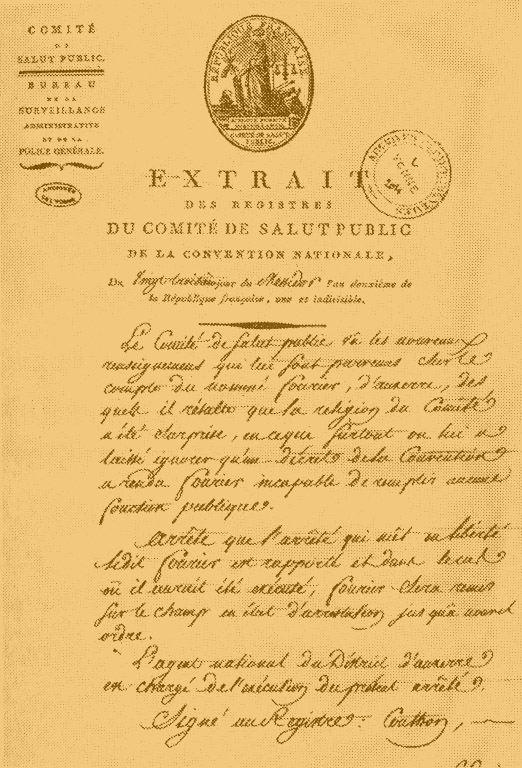 COMITÉ
DE
SALUT PUBLIC.
BUREAU
DE LA
SURVEILLANCE
ADMINISTRATIVE
ET DE LA
POLICE GÉNÉRALE.
RÉPUBLIQUE FRANÇAISE
PUBLIC.
ARCHIVES
DE L'YONNE
EXTRAIT
DES REGISTRES
DU COMITÉ DE SALUT PUBLIC
DE LA CONVENTION NATIONALE,
Du Vingt troisième jour du Messidor l'an deuxième de
la République française, une et indivisible.
Le Comité de Salut public vu les nouveaux
renseignemens qui lui sont parvenus sur le
compte du nommé fourier, d'auxerre, des
quels il résulte que la religion du Comité
a été surprise, en ce que surtout on lui a
laissé ignorer qu'un décret de la Convention
a rendu fourier incapable de remplir aucune
fonction publique.
arrête que l'arrêté qui met en liberté
ledit fourier est rapporté et dans le cas
où il aurait été exécuté, fourier sera remis
sur le champ en état d'arrestation jusqu'à nouvel
ordre.
L'agent national du District d'auxerre
est chargé de l'exécution du présent arrêté.
Signé au Registre. Couthon,